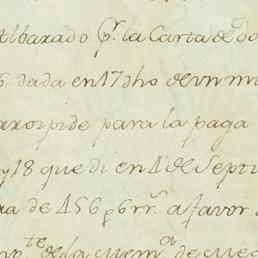 Albaxado p.r la Carta de do
6. dada en 17 dho de vn mi
axor pide para la paga
y 18 que di en 4 de Septi
na de 456 p 6 rr.s a favor
te de la cuem.a de